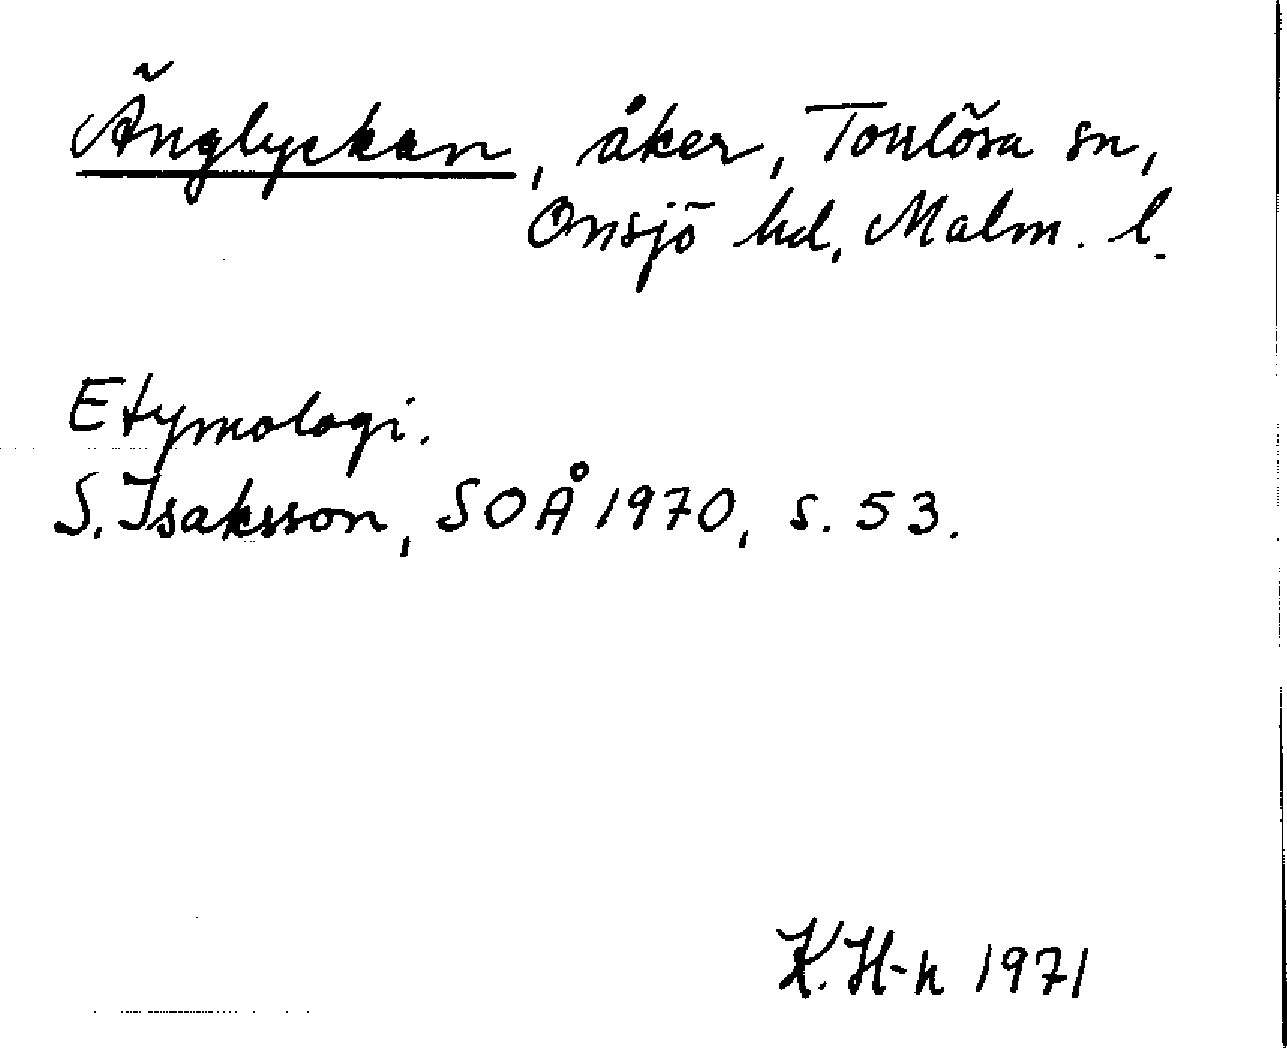 Änglyckan, åker, Torrlösa sn,
Onsjö hd, Malm. l.
Etymologi.
S. Isaksson, SOÅ 1970, s. 53.
K. H-n 1971